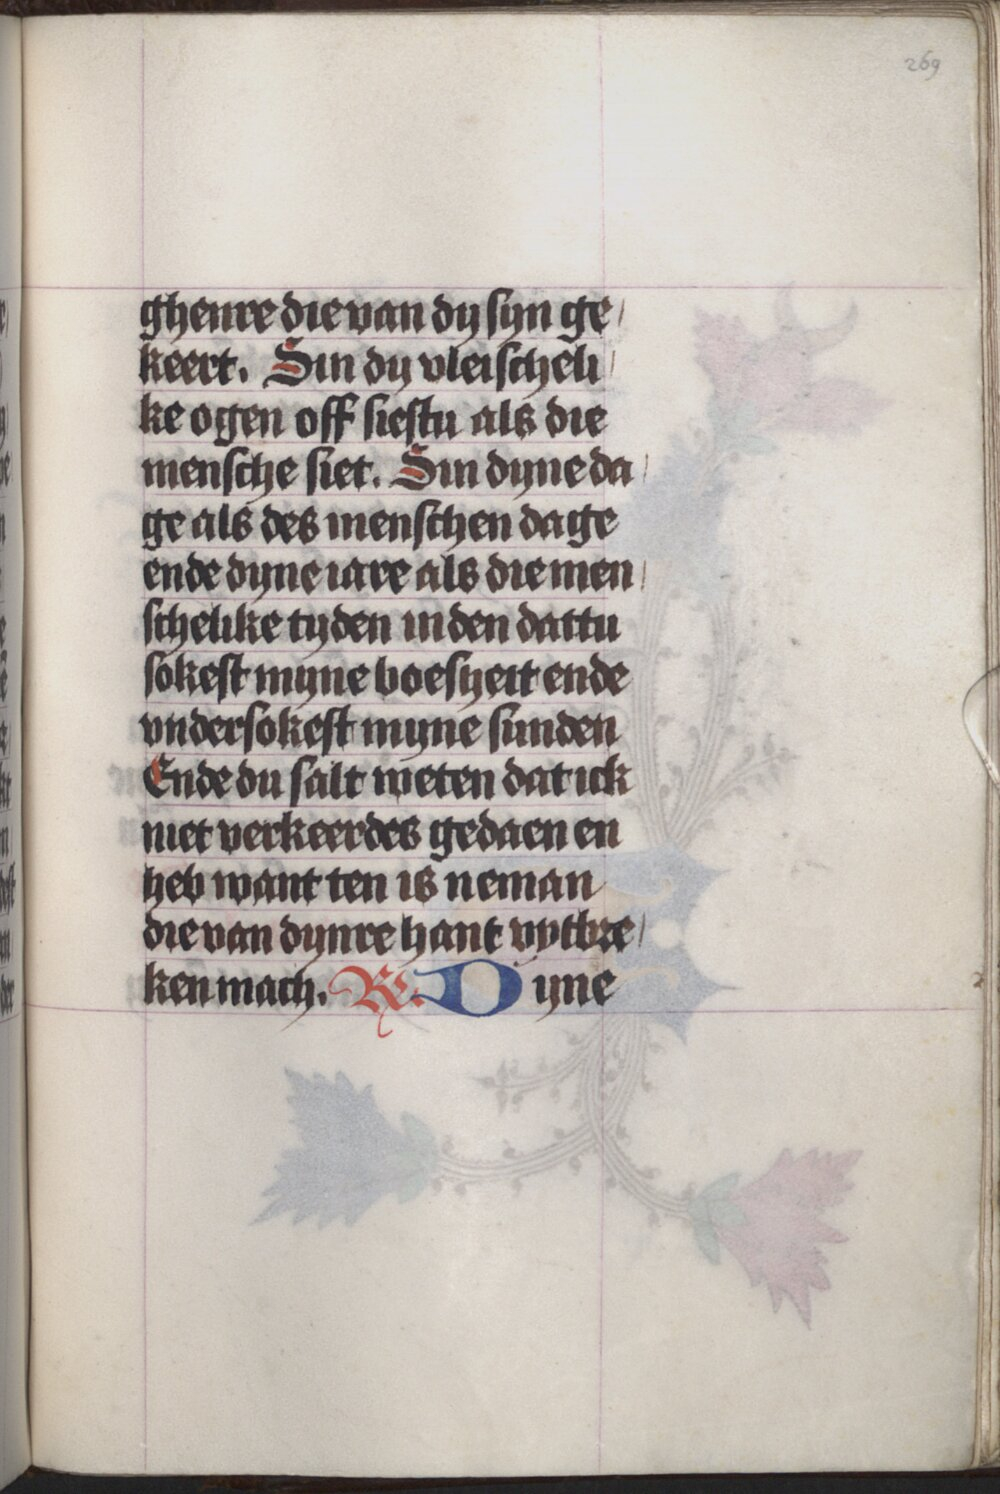 269
ghenre die van dy syn ge/
keert. Sin dy vleischeli/
ke ogen off siestu als die
mensche siet. Sin dyne da/
ge als des menschen dage
ende dyne iare als die men/
schelike tyden in den dattu
sokest myne boesheit ende
vndersokest myne sunden
Ende du salt weten dat ick
niet verkeerdes gedaen en
heb want ten is neman
die van dynre hant vytbre/
ken mach. R. Dyne